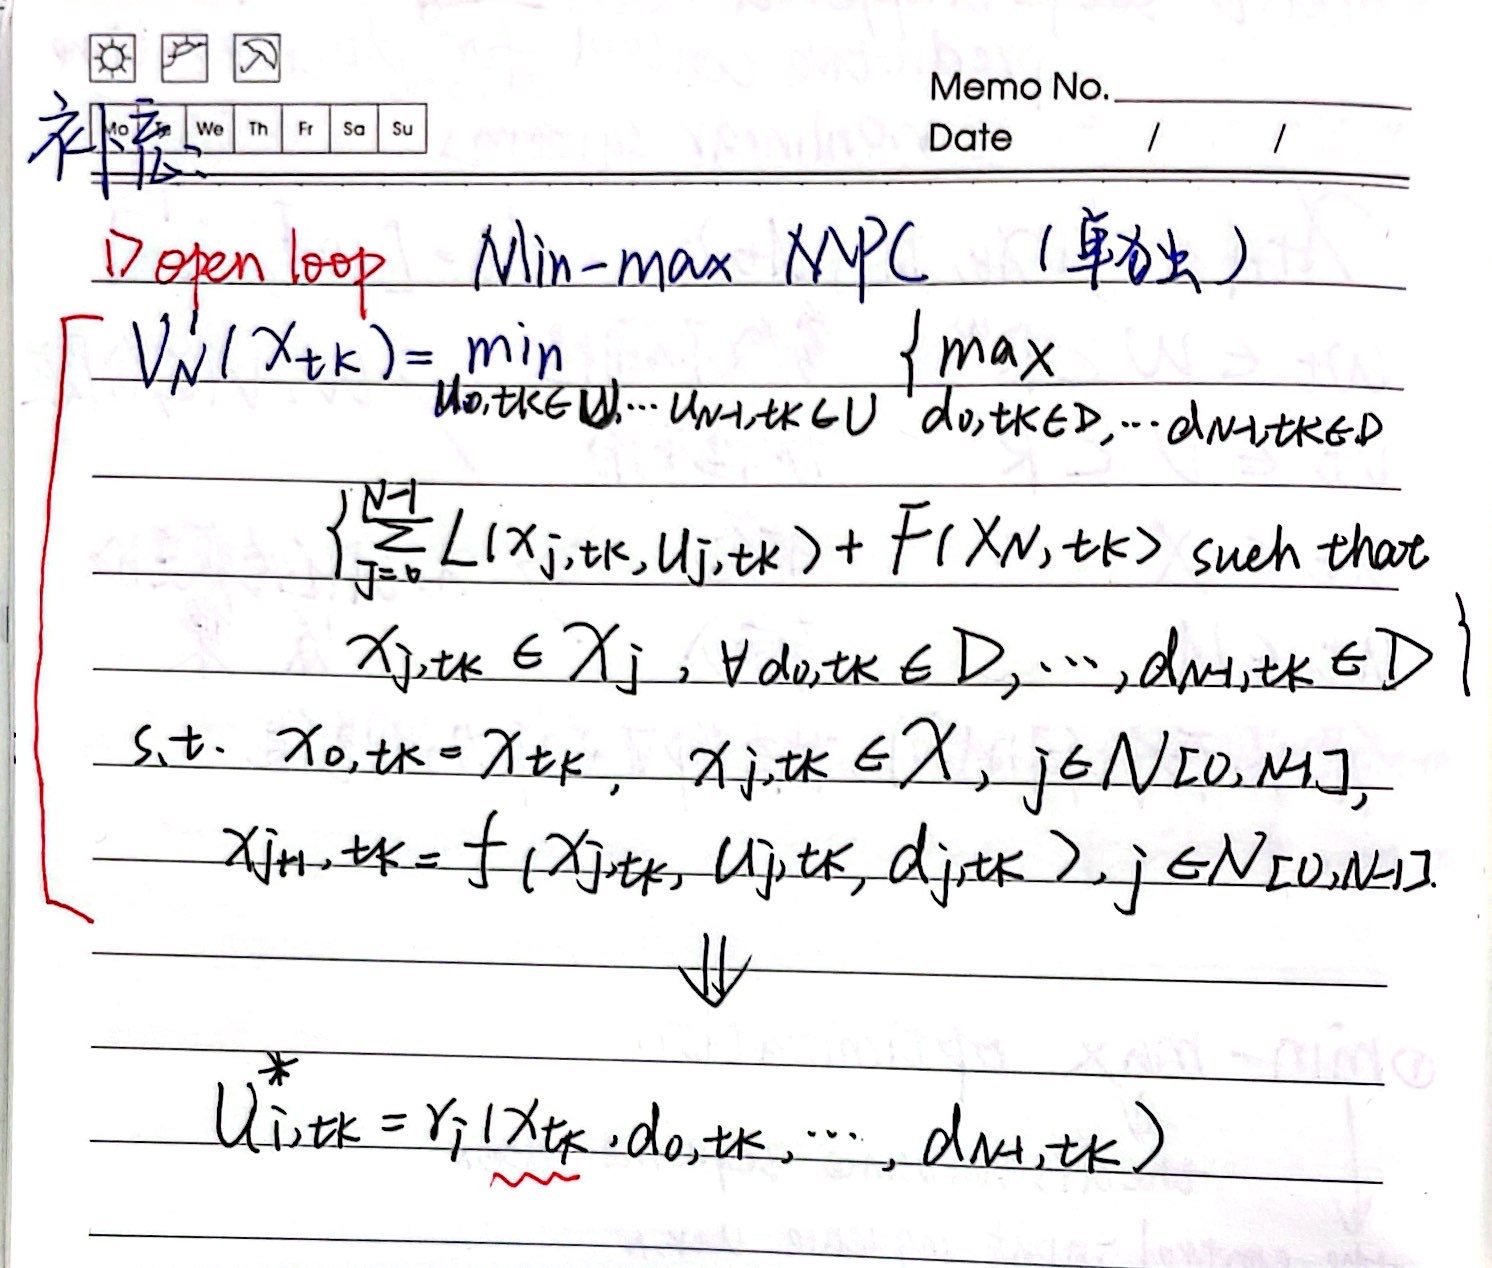 Memo No.
Date / /
Mo We Th Fr Sa Su
补充:
1) open loop Min-max MPC (单独)
V_N^1(x_{tk}) = min_{u_{0,tk}∈U,… u_{N-1,tk}∈U} { max_{d_{0,tk}∈D,… d_{N-1,tk}∈D}
{ \sum_{j=0}^{N-1} L(x_{j,tk}, u_{j,tk}) + F(x_{N,tk}) such that
x_{j,tk} ∈ X_j, ∀ d_{0,tk} ∈ D, …, d_{N-1,tk} ∈ D }
s.t. x_{0,tk} = x_{tk}, x_{j,tk} ∈ X, j∈N[0,N-1],
x_{j+1,tk} = f(x_{j,tk}, u_{j,tk}, d_{j,tk}), j∈N[0,N-1].
⇓
U^*_{i,tk} = r_j(x_{tk}, d_{0,tk}, …, d_{N-1,tk})